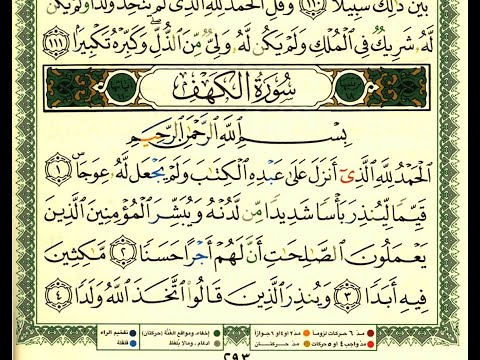 بَيْنَ ذَٰلِكَ سَبِيلًا ١١٠ وَقُلِ الْحَمْدُ لِلَّهِ الَّذِى لَمْ يَتَّخِذْ وَلَدًا وَلَمْ يَكُن
لَّهُ شَرِيكٌ فِى الْمُلْكِ وَلَمْ يَكُن لَّهُ وَلِىٌّ مِّنَ الذُّلِّ وَكَبِّرْهُ تَكْبِيرًا ١١١
سُورَةُ الْكَهْفِ
بِسْمِ اللَّهِ الرَّحْمَٰنِ الرَّحِيمِ
الْحَمْدُ لِلَّهِ الَّذِىٓ أَنزَلَ عَلَىٰ عَبْدِهِ الْكِتَٰبَ وَلَمْ يَجْعَل لَّهُ عِوَجَاۜ ١
قَيِّمًا لِّيُنذِرَ بَأْسًا شَدِيدًا مِّن لَّدُنْهُ وَيُبَشِّرَ الْمُؤْمِنِينَ الَّذِينَ
يَعْمَلُونَ الصَّٰلِحَٰتِ أَنَّ لَهُمْ أَجْرًا حَسَنًا ٢ مَّٰكِثِينَ
فِيهِ أَبَدًا ٣ وَيُنذِرَ الَّذِينَ قَالُوا اتَّخَذَ اللَّهُ وَلَدًا ٤
مدّ ٦ حركات لزوماً مدّ ٢ أو ٤ أو ٦ جوازاً إخفاء، ومواقع الغُنَّة (حركتان) تفخيم الراء
مدّ واجب ٤ أو ٥ حركات مدّ حركتان ادغام، ومالا يُلفظ قلقلة
٢٩٣